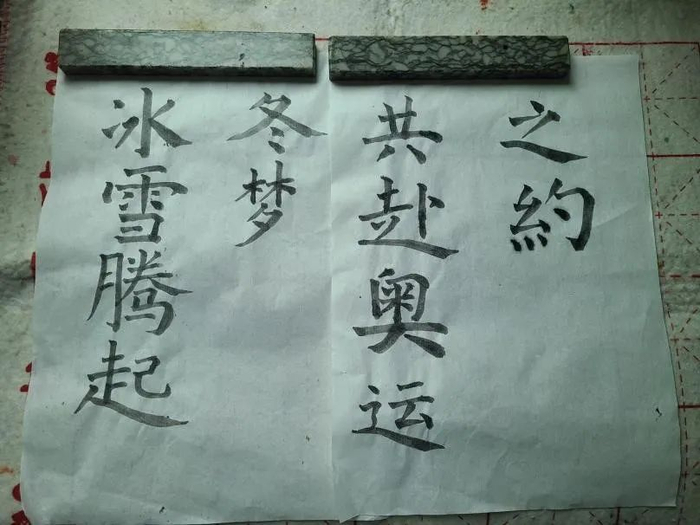 冰雪腾起
冬梦
共赴奥运
之約